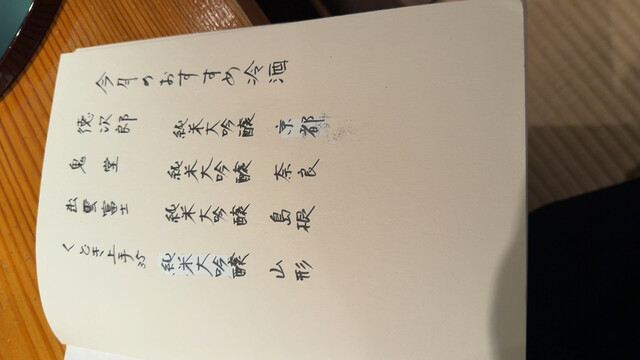 今月のおすすめ冷酒
徳次郎 純米大吟醸 京都
鬼堂 純米大吟醸 奈良
出雲富士 純米大吟醸 島根
くどき上手 純米大吟醸 山形